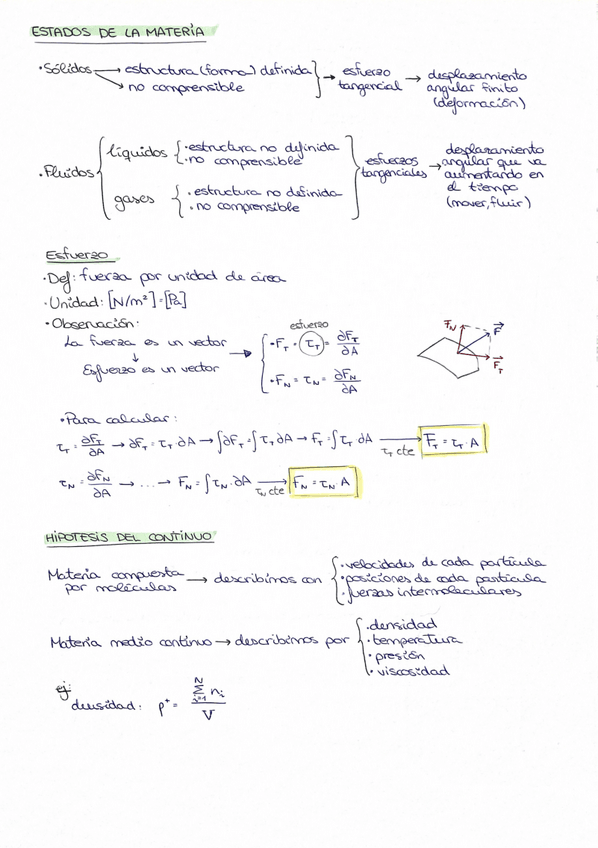 ESTADOS DE LA MATERIA
·Sólidos → estructura (forma) definida → no comprensible } → esfuerzo tangencial → desplazamiento angular finito (deformación)
·Fluidos { líquidos { ·estructura no definida ·no comprensible
gases { ·estructura no definida ·no comprensible } esfuerzos tangenciales → desplazamiento angular que va aumentando en el tiempo (mover, fluir)
Esfuerzo
·Def: fuerza por unidad de área
·Unidad: [N/m²]=[Pa]
·Observación:
La fuerza es un vector
↓
Esfuerzo es un vector
→ { esfuerzo
·F_T · τ_T = ∂F_T/∂A
·F_N = τ_N = ∂F_N/∂A
F_N F⃗ F⃗_T
·Para calcular:
τ_T = ∂F_T/∂A → ∂F_T = τ_T ∂A → ∫∂F_T = ∫τ_T ∂A → F_T = ∫τ_T ∂A → τ_T cte F_T = τ_T · A
τ_N = ∂F_N/∂A → ... → F_N = ∫τ_N · ∂A → τ_N cte F_N = τ_N · A
HIPOTESIS DEL CONTINUO
Materia compuesta por moléculas → describimos con { ·velocidades de cada partícula
·posiciones de cada partícula
·fuerzas intermoleculares
Materia medio continuo → describimos por { ·densidad
·temperatura
·presión
·viscosidad
ej:
densidad: ρ* = Σ_{i=1}^{N} n_i / V